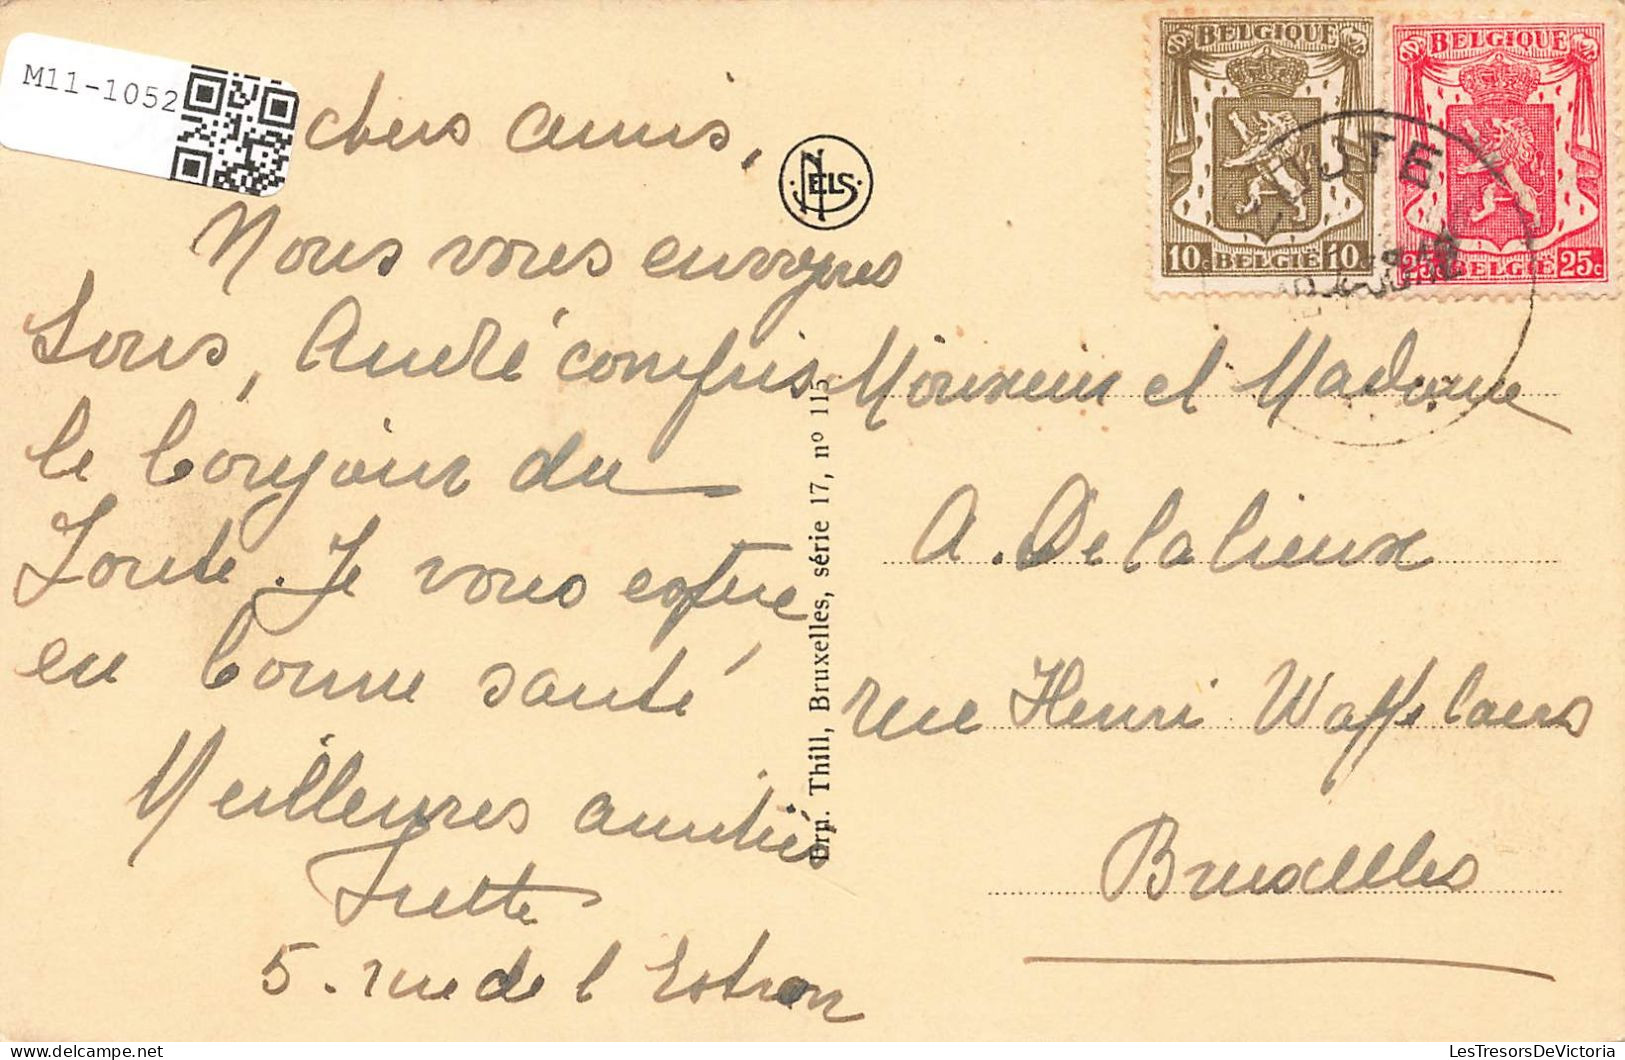 M11-1052
chers amis,
NELS
Nous vous envoyons
tous, André compris
le bonjour du
Zoute. Je vous espère
en bonne santé
Meilleures amitiés
5. rue de l'Estran
Ern. Thill, Bruxelles, série 17, nº 115
BELGIQUE
10c BELGIË 10c
BELGIQUE
25c BELGIË 25c
Monsieur et Madame
A. Delalieux
rue Henri Waffelaers
Bruxelles
LesTresorsDeVictoria